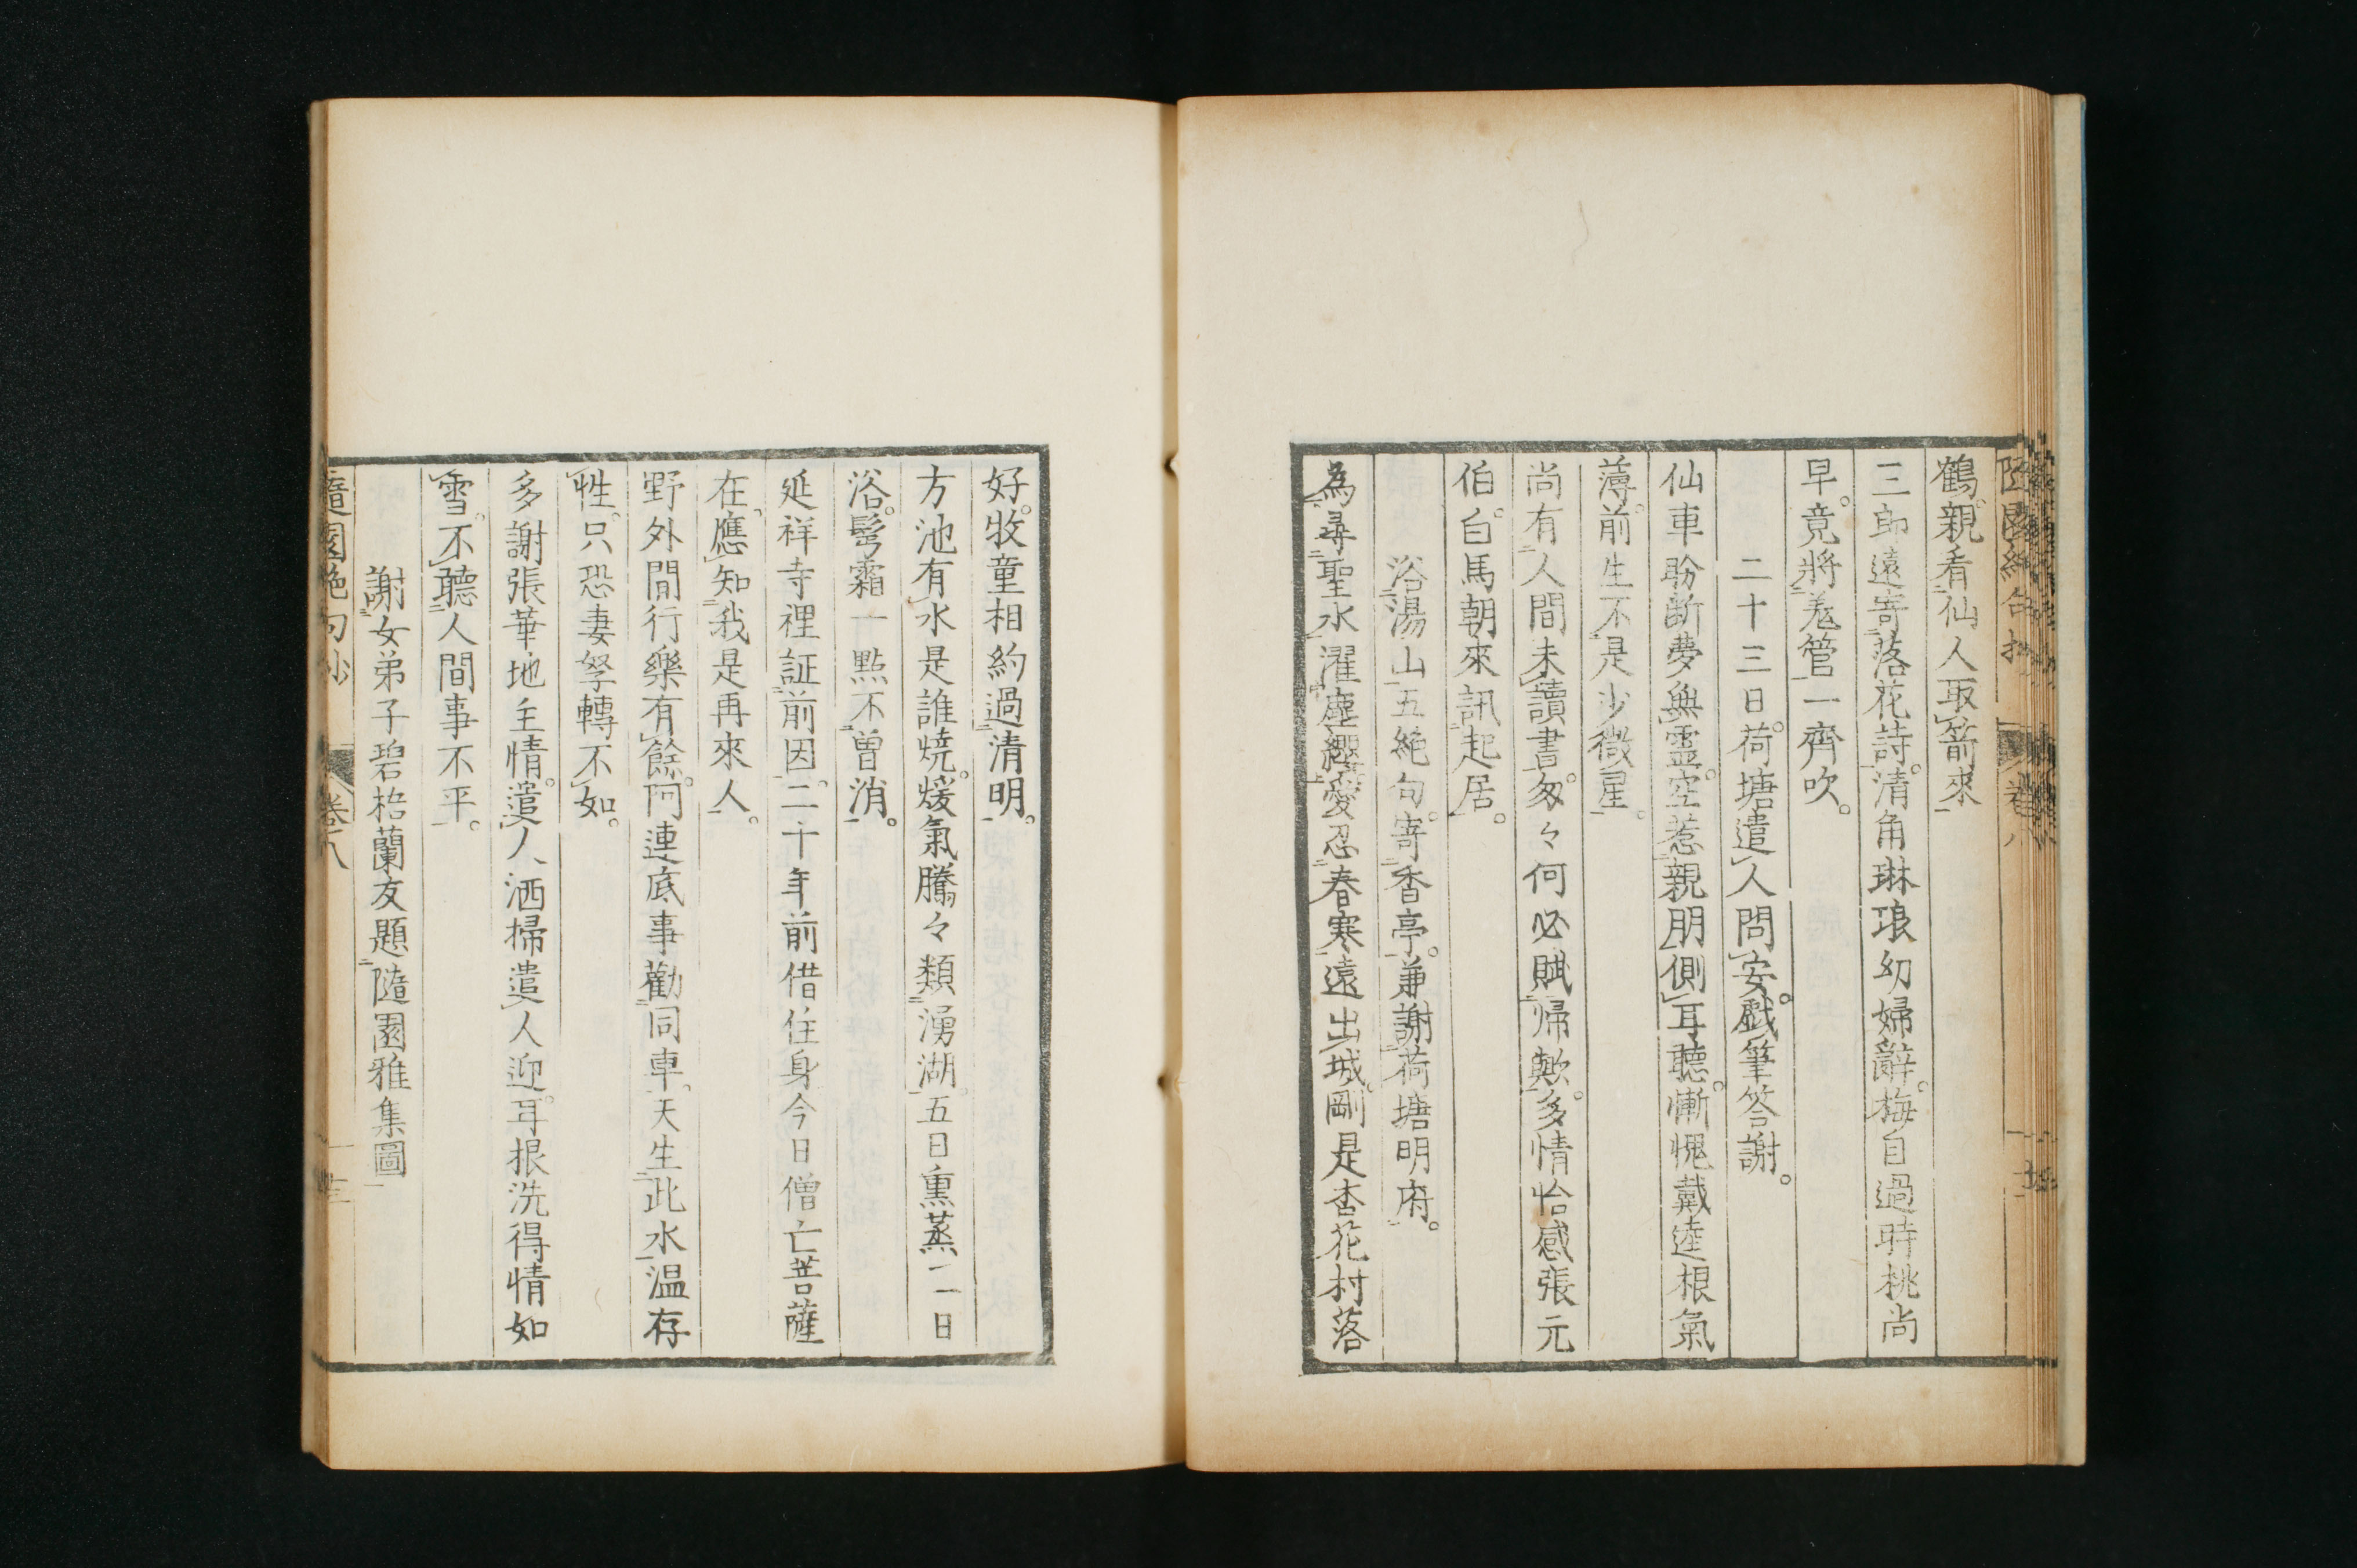 鶴。親看仙人取箭來
三郎遠寄落花詩。清角琳琅幻婦辭。梅自過時桃尚
早。竟將羗管一齊吹。
二十三日。荷塘遣人問安。戯筆答謝。
仙車盼断夢無靈。空惹親朋側耳聽。慚愧戴逵根氣
薄。前生不是少微星。
尚有人間未讀書。匆々何必賦帰歟。多情恰感張元
伯。白馬朝來訊起居。
浴湯山五絶句。寄香亭。兼謝荷塘明府。
為尋聖水濯塵纓。愛忍春寒遠出城。剛是杏花村落
好。牧童相約過清明。
方池有水是誰焼。煖氣騰々類湧湖。五日熏蒸一日
浴。鬂霜一點不曽消。
延祥寺裡証前因。二十年前借住身今日僧亡菩薩
在。應知我是再來人。
野外間行樂有餘。阿連底事勸同車。天生此水温存
性。只恐妻孥轉不如。
多謝張華地主情。遣人洒掃遣人迎。耳根洗得情如
雪。不聽人間事不平。
謝女弟子碧梧蘭友題隨園雅集圖
隨園絶句抄 卷八